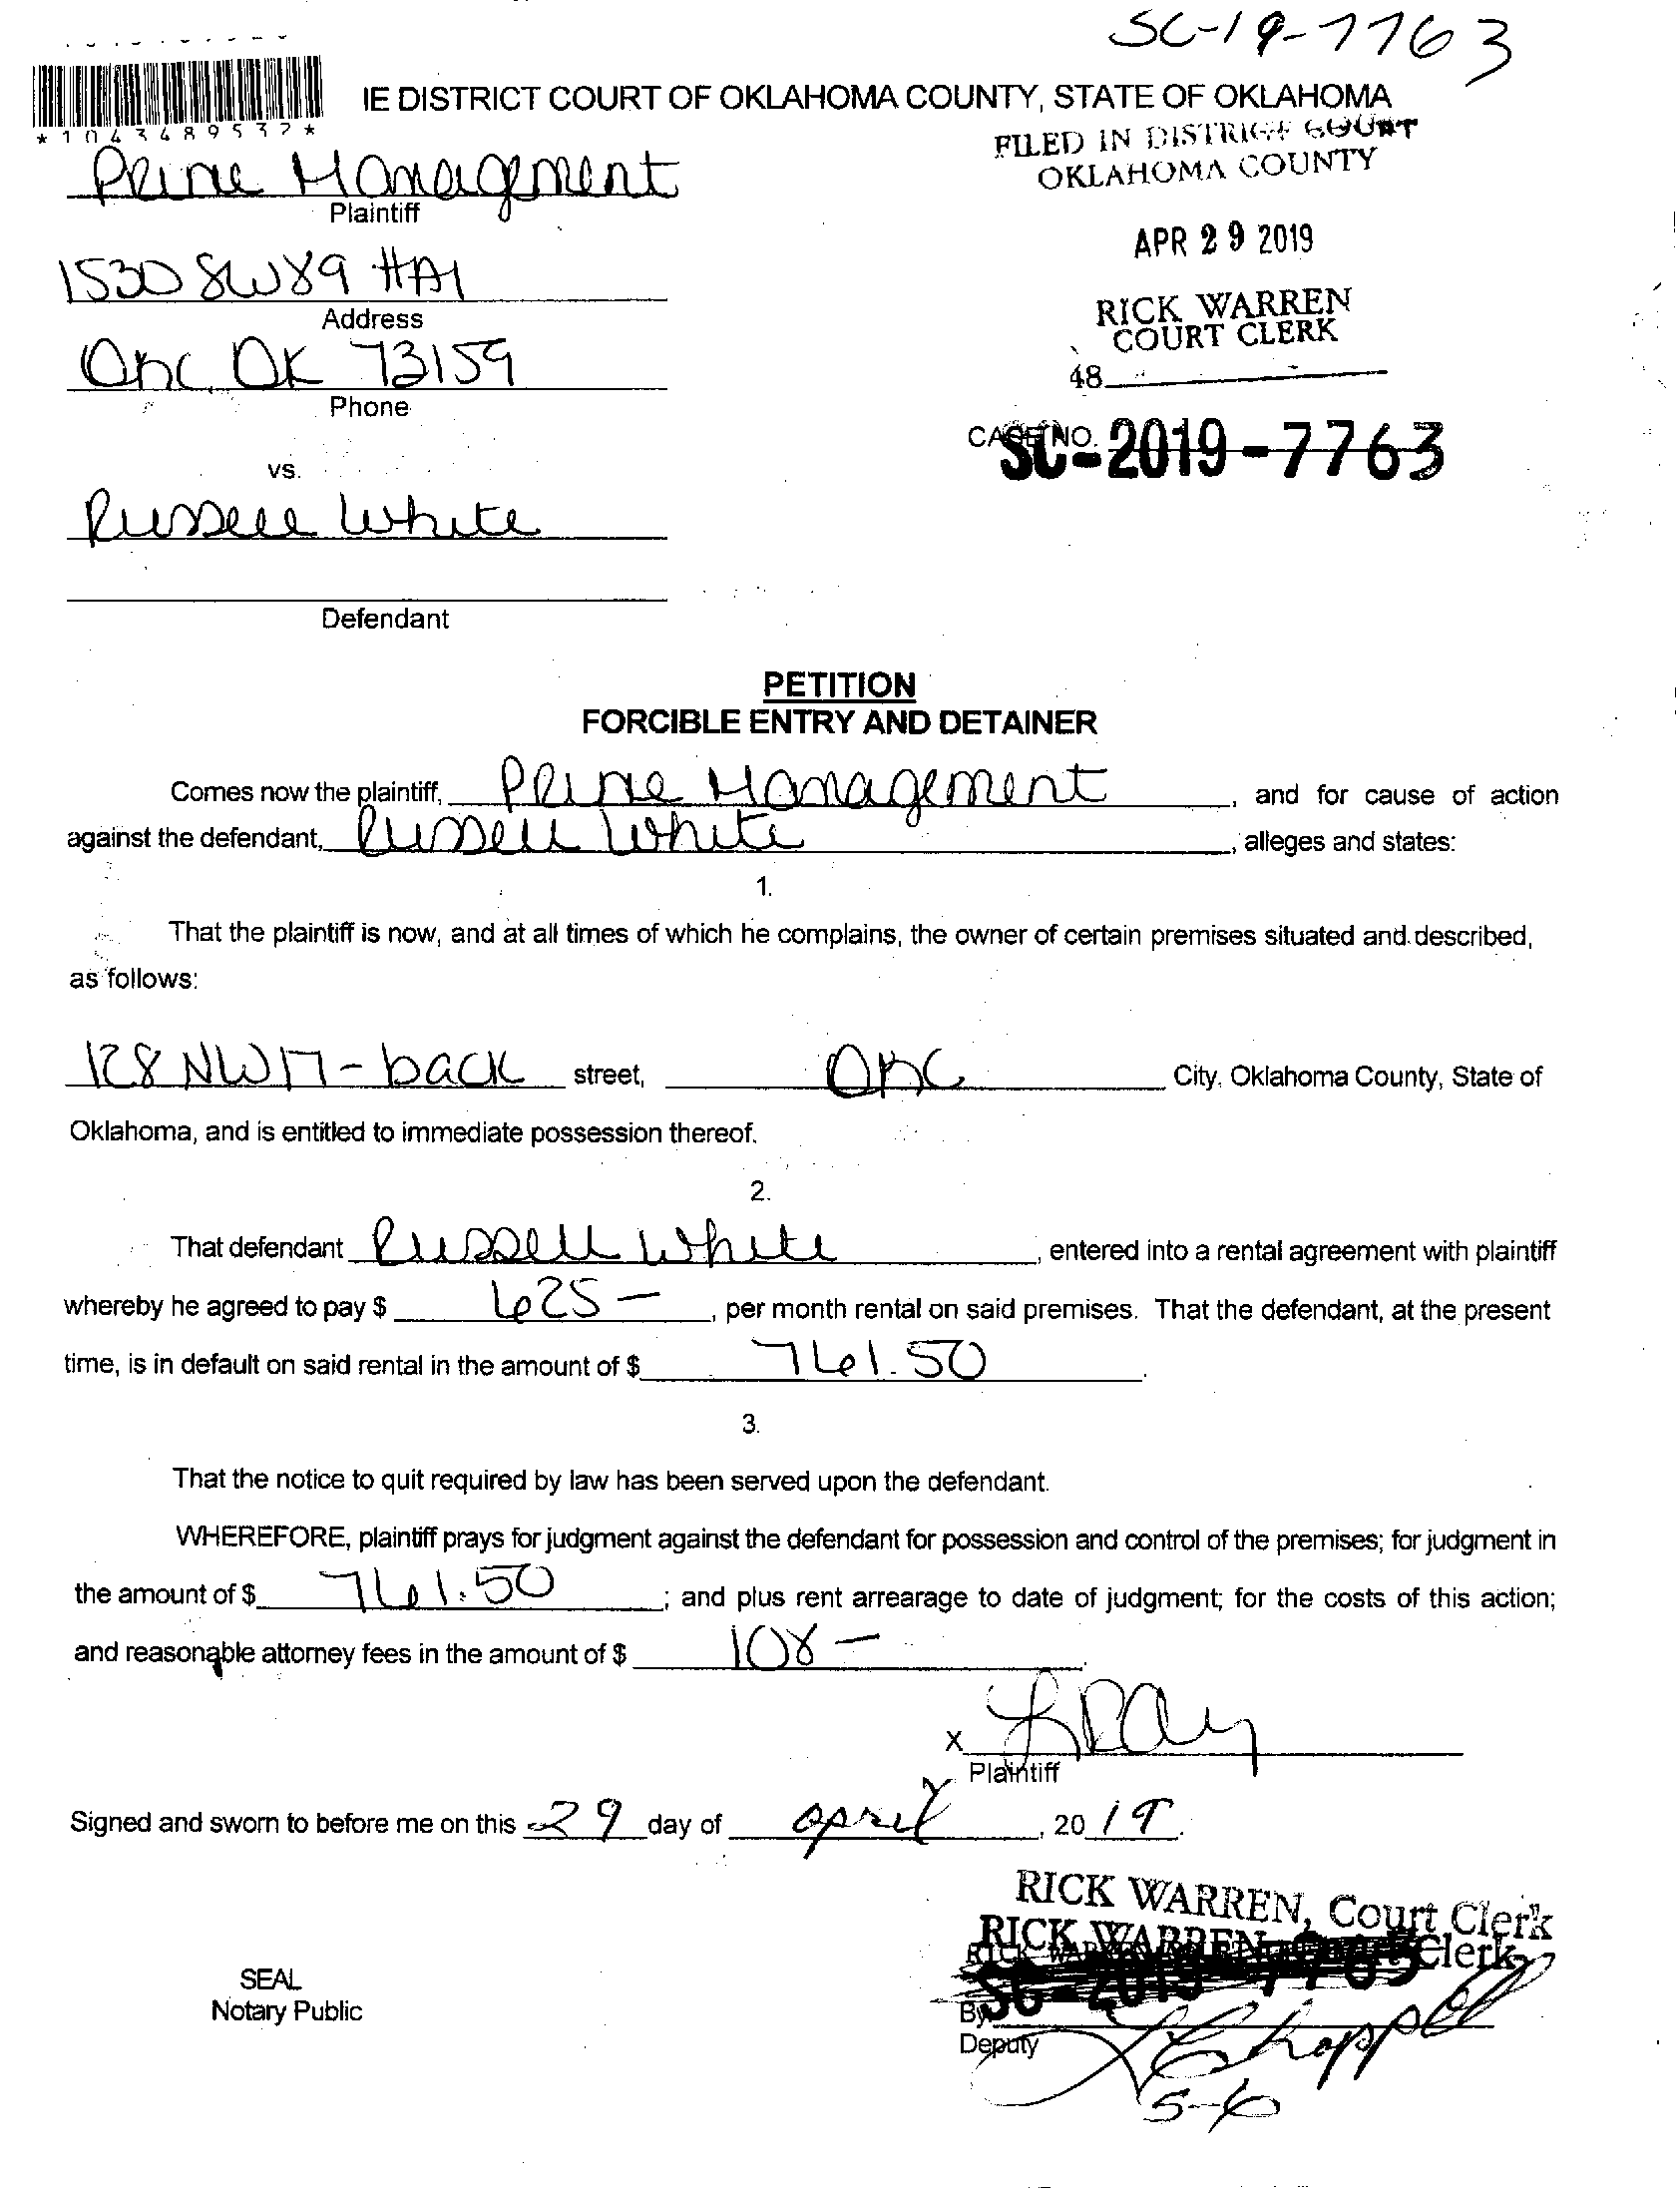 SC-19-7763
*1043489537*
IE DISTRICT COURT OF OKLAHOMA COUNTY, STATE OF OKLAHOMA
FILED IN DISTRICT COURT
OKLAHOMA COUNTY
Prine Managment
Plaintiff
APR 29 2019
1530 SW89 #A1
Address
RICK WARREN
COURT CLERK
OKC OK 73159
Phone
48
CASE NO.
SC-2019-7763
vs.
Russell White
Defendant
PETITION
FORCIBLE ENTRY AND DETAINER
Comes now the plaintiff, Prine Management, and for cause of action
against the defendant, Russell White, alleges and states:
1.
That the plaintiff is now, and at all times of which he complains, the owner of certain premises situated and described,
as follows:
128 NW17-back street, OKC City, Oklahoma County, State of
Oklahoma, and is entitled to immediate possession thereof.
2.
That defendant Russell White, entered into a rental agreement with plaintiff
whereby he agreed to pay $ 625-, per month rental on said premises. That the defendant, at the present
time, is in default on said rental in the amount of $ 761.50.
3.
That the notice to quit required by law has been served upon the defendant.
WHEREFORE, plaintiff prays for judgment against the defendant for possession and control of the premises; for judgment in
the amount of $ 761.50; and plus rent arrearage to date of judgment; for the costs of this action;
and reasonable attorney fees in the amount of $ 108-.
X LRay
Plaintiff
Signed and sworn to before me on this 29 day of april, 2019.
RICK WARREN, Court Clerk
RICK WARREN, Court Clerk
SC-2019-7763
SEAL
Notary Public
By
Deputy
Chappell
5-6